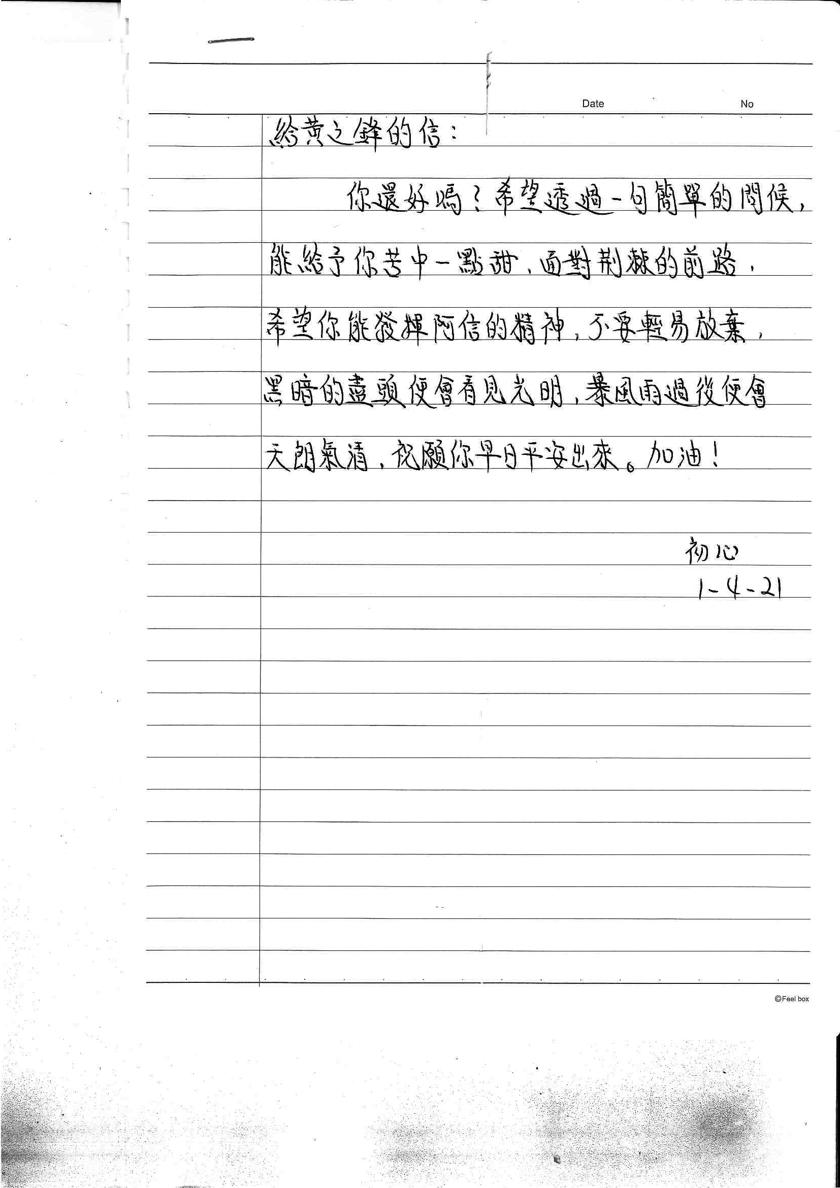 Date No
給黃之鋒的信：
你還好嗎？希望透過一句簡單的問候，
能給予你苦中一點甜，面對荆棘的前路，
希望你能發揮阿信的精神，不要輕易放棄，
黑暗的盡頭便會看見光明，暴風雨過後便會
天朗氣清，祝願你早日平安出來。加油！
初心
1-4-21
©Feel box